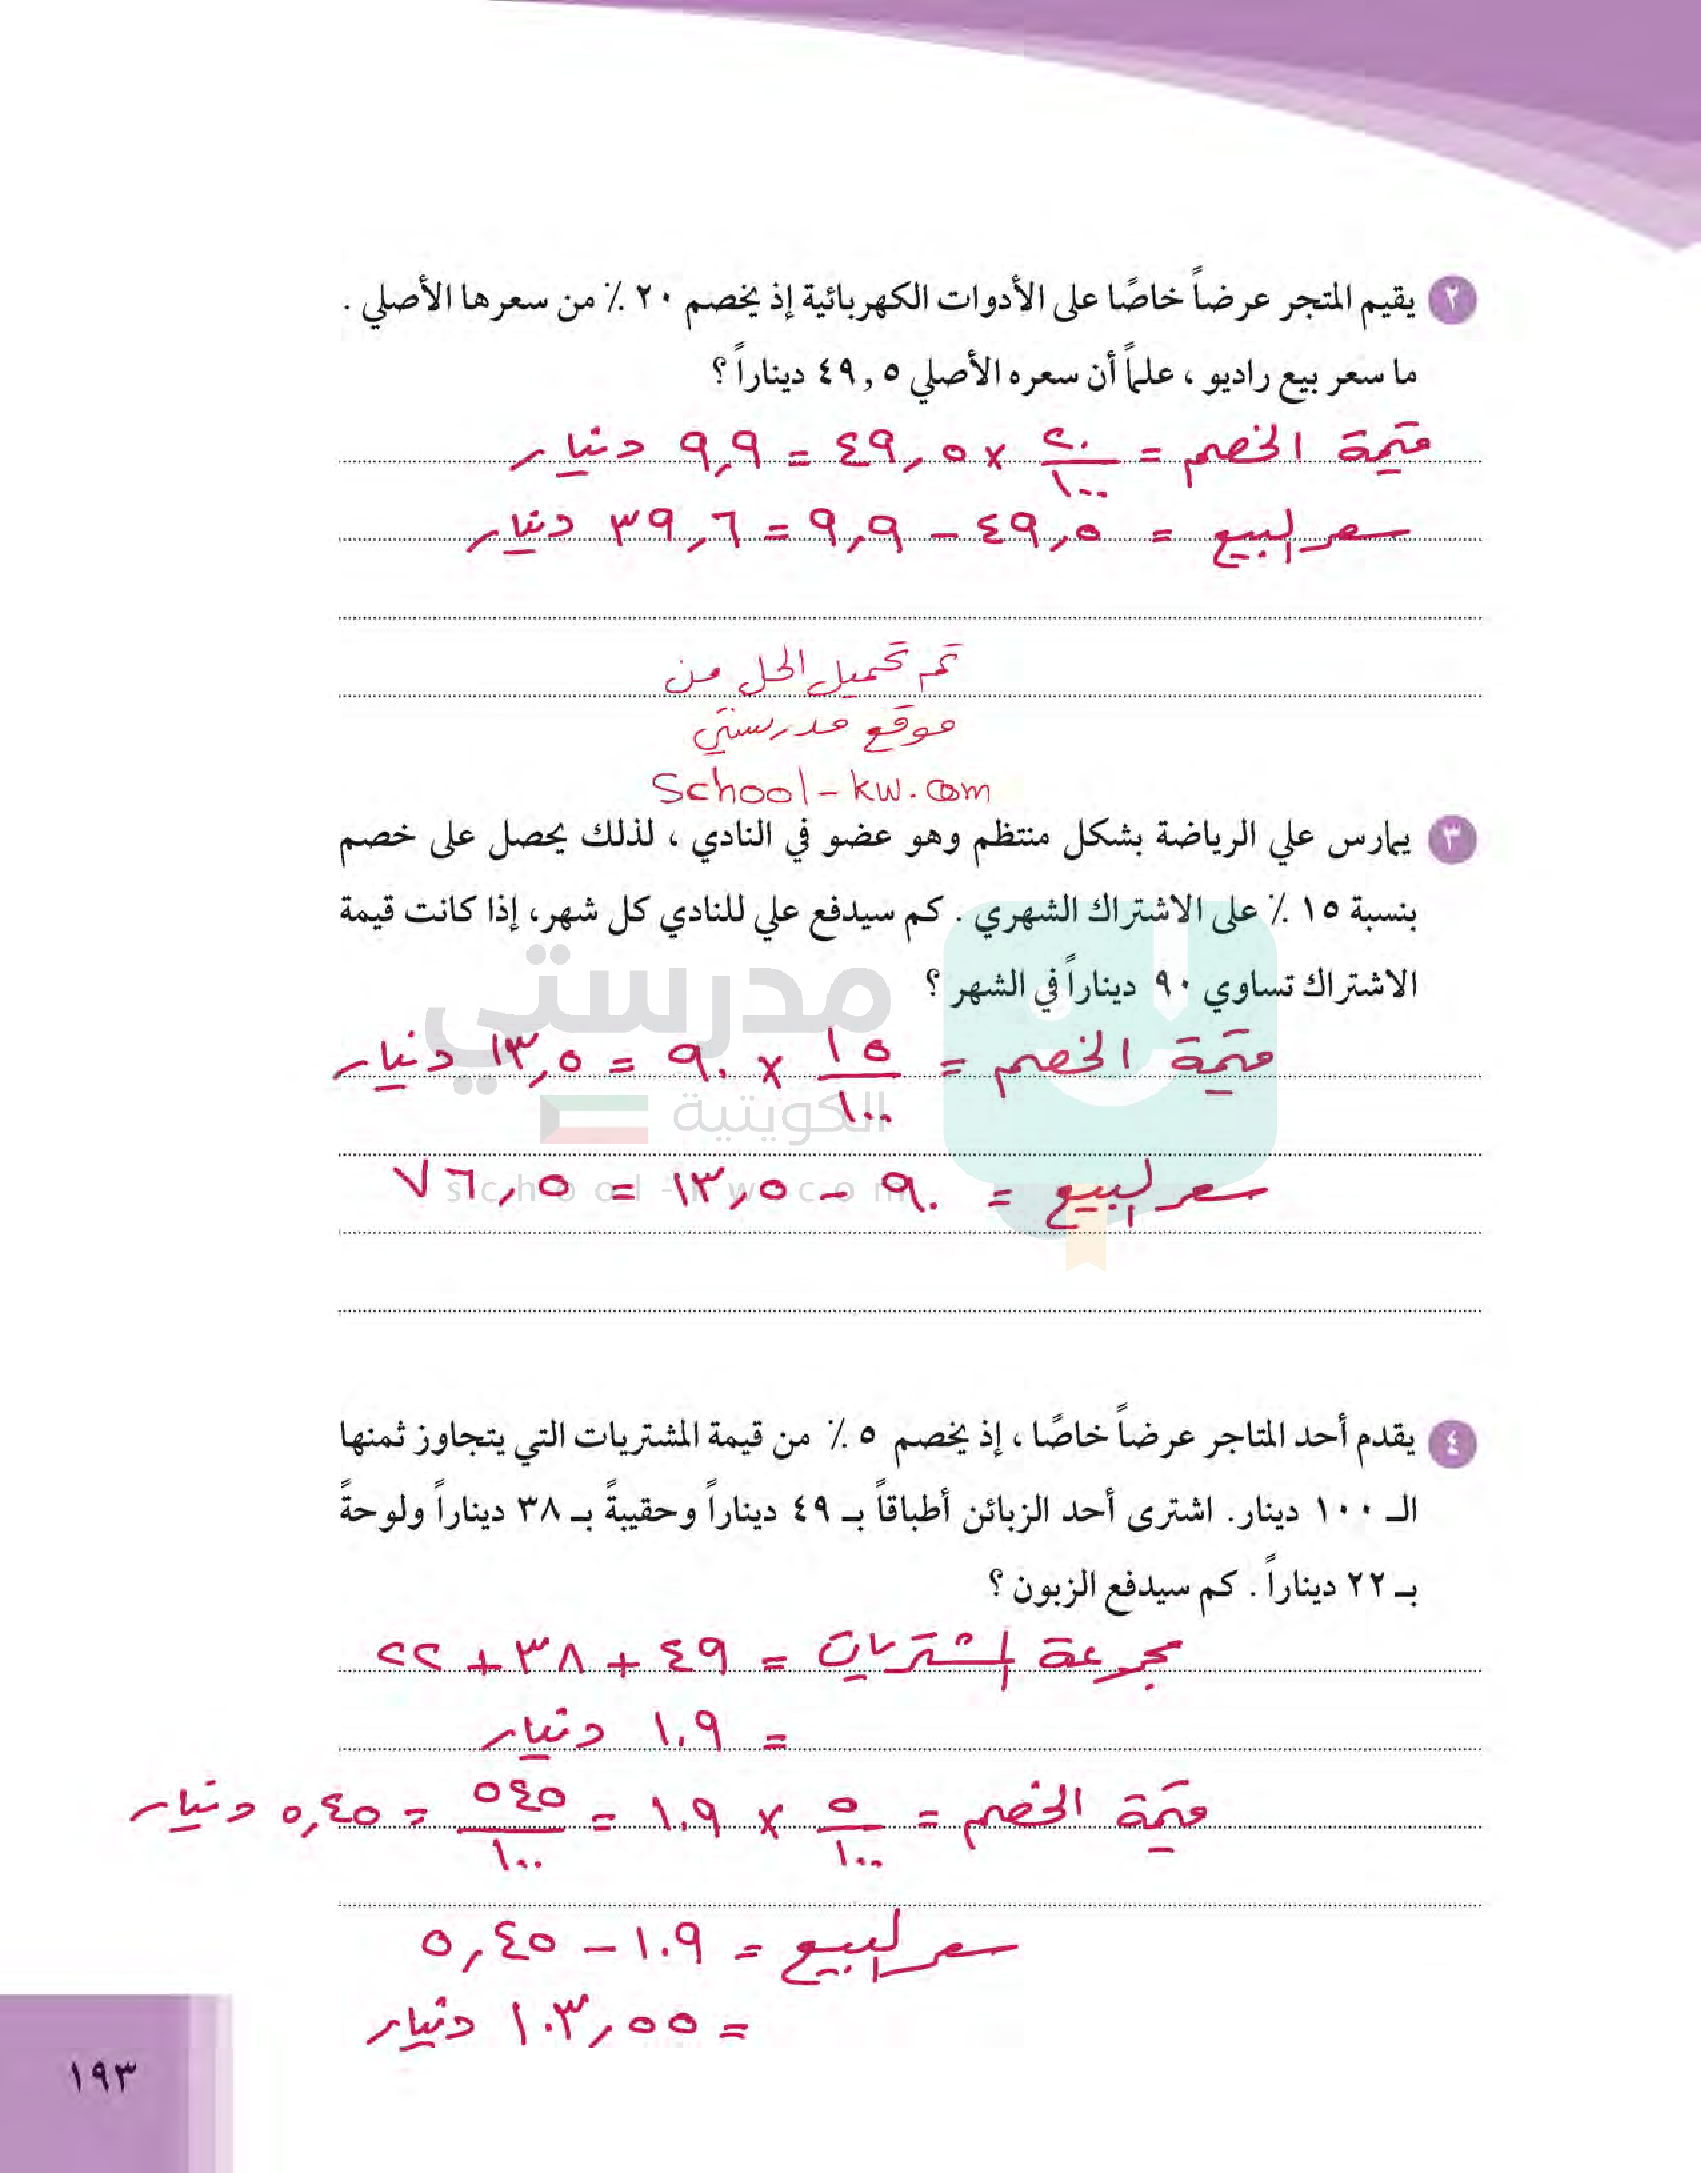 ٢ يقيم المتجر عرضاً خاصًا على الأدوات الكهربائية إذ يخصم ٢٠ ٪ من سعرها الأصلي .
ما سعر بيع راديو ، علماً أن سعره الأصلي ٤٩,٥ ديناراً ؟
قيمة الخصم = ٢٠/١٠٠ × ٤٩,٥ = ٩,٩ دنيار
سعر البيع = ٤٩,٥ – ٩,٩ = ٣٩,٦ دنيار
تم تحميل الحل من
موقع مدرستي
School-kw.com
٣ يمارس علي الرياضة بشكل منتظم وهو عضو في النادي ، لذلك يحصل على خصم
بنسبة ١٥ ٪ على الاشتراك الشهري . كم سيدفع علي للنادي كل شهر، إذا كانت قيمة
الاشتراك تساوي ٩٠ ديناراً في الشهر ؟
مدرستي
قيمة الخصم = ١٥/١٠٠ × ٩٠ = ١٣,٥ دنيار
الكويتية
سعر البيع = ٩٠ – ١٣,٥ = ٧٦,٥
school-kw.com
٤ يقدم أحد المتاجر عرضاً خاصًا ، إذ يخصم ٥ ٪ من قيمة المشتريات التي يتجاوز ثمنها
الـ ١٠٠ دينار. اشترى أحد الزبائن أطباقاً بـ ٤٩ ديناراً وحقيبةً بـ ٣٨ ديناراً ولوحةً
بـ ٢٢ ديناراً . كم سيدفع الزبون ؟
مجموعة المشتريات = ٤٩ + ٣٨ + ٢٢
= ١٠٩ دنيار
قيمة الخصم = ٥/١٠٠ × ١٠٩ = ٥٤٥/١٠٠ = ٥,٤٥ دنيار
سعر البيع = ١٠٩ – ٥,٤٥
= ١٠٣,٥٥ دنيار
١٩٣